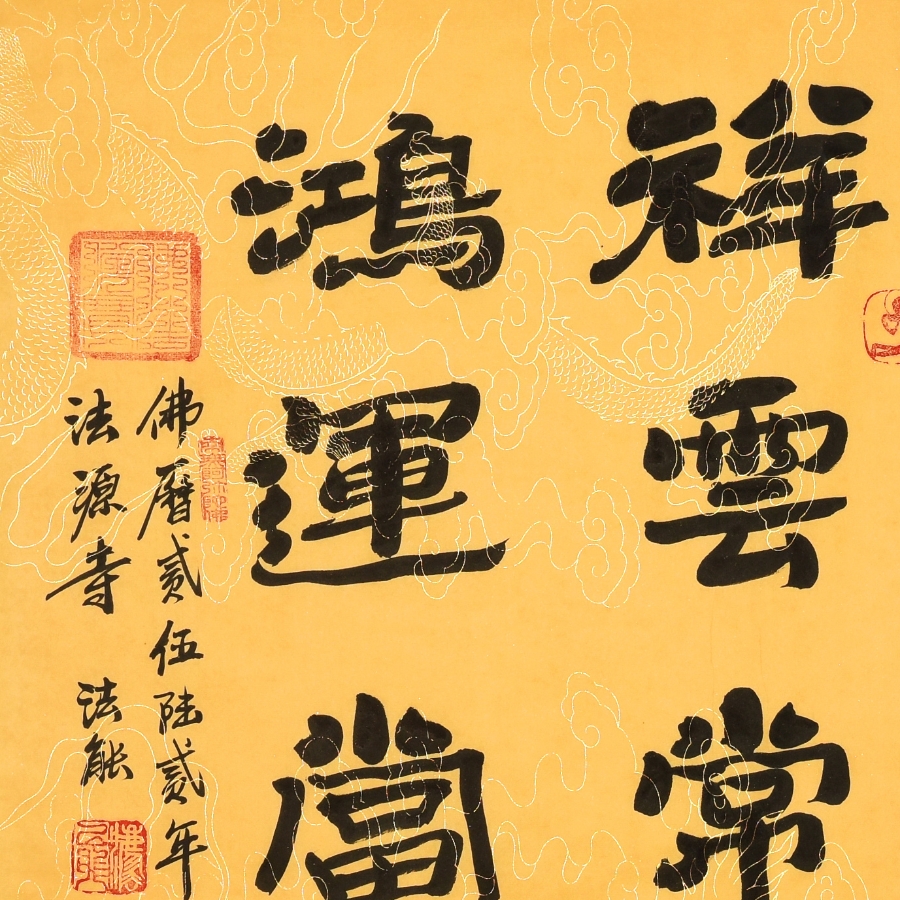 祥雲常
鴻運當
佛曆貳伍陸貳年
法源寺 法能